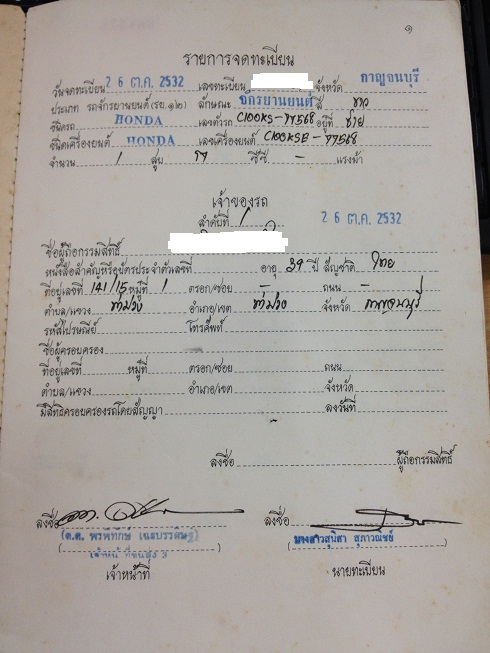 ๑
รายการจดทะเบียน
วันจดทะเบียน 26 ต.ค. 2532 เลขทะเบียน จังหวัด กาญจนบุรี
ประเภท รถจักรยานยนต์(รย.๑๒) ลักษณะ จักรยานยนต์ สี ขาว
ชนิดรถ HONDA เลขตัวรถ C100KS-77568 อยู่ที่ ซ้าย
ชนิดเครื่องยนต์ HONDA เลขเครื่องยนต์ C100KSE-77568
จำนวน 1 สูบ ซีซี - แรงม้า
เจ้าของรถ
ลำดับที่ 1 26 ต.ค. 2532
ชื่อผู้ถือกรรมสิทธิ์
หนังสือสำคัญหรือบัตรประจำตัวเลขที่ อายุ 39 ปี สัญชาติ ไทย
ที่อยู่เลขที่ 141/15 หมู่ที่ 1 ตรอก/ซอย - ถนน -
ตำบล/แขวง ท่าม่วง อำเภอ/เขต ท่าม่วง จังหวัด กาญจนบุรี
รหัสไปรษณีย์ โทรศัพท์
ชื่อผู้ครอบครอง
ที่อยู่เลขที่ หมู่ที่ ตรอก/ซอย ถนน
ตำบล/แขวง อำเภอ/เขต จังหวัด
มีสิทธิครอบครองรถโดยสัญญา ลงวันที่
ลงชื่อ ผู้ถือกรรมสิทธิ์
ลงชื่อ ลงชื่อ
(ด.ต. พรพิทักษ์ ) (นางสาวสุนิสา สุภาวณิชย์)
เจ้าหน้าที่ นายทะเบียน